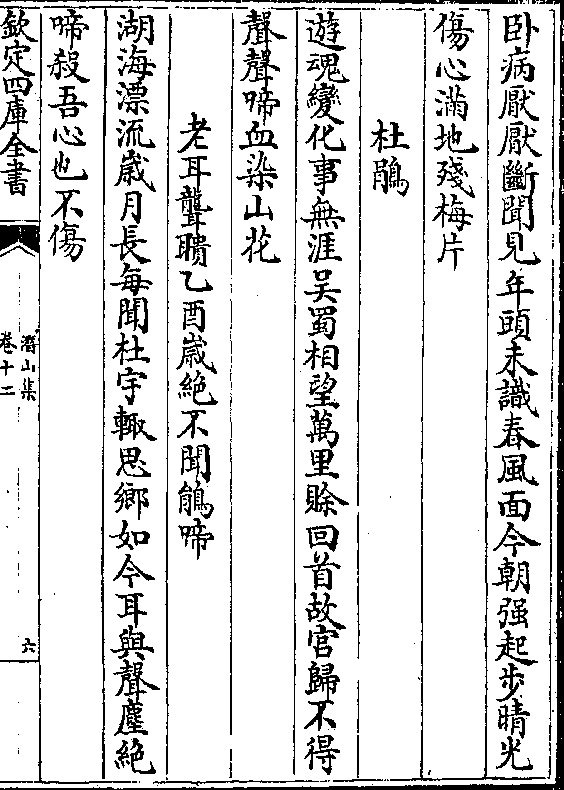 卧病厭厭斷聞見年頭未識春風面今朝强起步晴光
傷心滿地殘梅片
杜鵑
遊魂變化事無涯吴蜀相望萬里賒回首故宫歸不得
聲聲啼血染山花
老耳聾聵乙酉嵗絶不聞鵑啼
湖海漂流嵗月長每聞杜宇輙思鄉如今耳與聲塵絶
啼殺吾心也不傷
欽定四庫全書
潛山集
卷十二
六